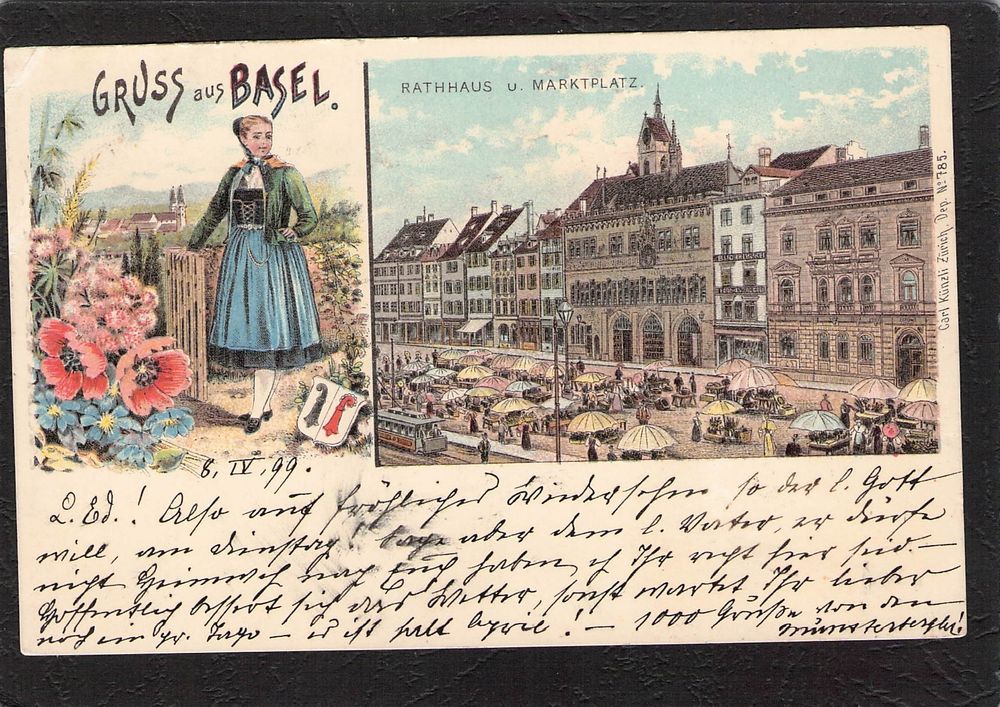 GRUSS aus BASEL.
RATHHAUS u. MARKTPLATZ.
Carl Künzli Zürich, Dep. No 785.
8. IV. 99.
L. Ed.! Also auf fröhliches Wiedersehn so der l. Gott
will, am Dienstag! Sage aber dem l. Vater, er dürfe
nicht Heimweh nach Euch haben, Ihr recht hier seid. —
Hoffentlich bessert sich das Wetter, sonst wartet Ihr lieber
noch ein pr. Tage — es ist halt April! — 1000 Grüße von den